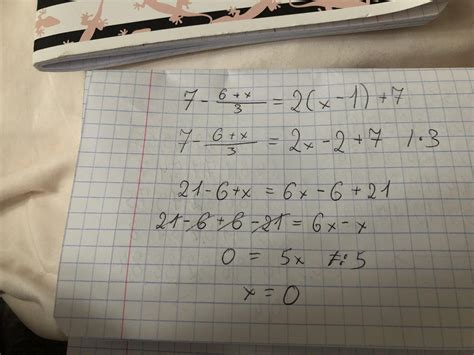 7 - (6+x)/3 = 2(x-1) + 7
7 - (6+x)/3 = 2x - 2 + 7 | · 3
21 - 6 + x = 6x - 6 + 21
21 - 6 + 6 - 21 = 6x - x
0 = 5x /: 5
x = 0